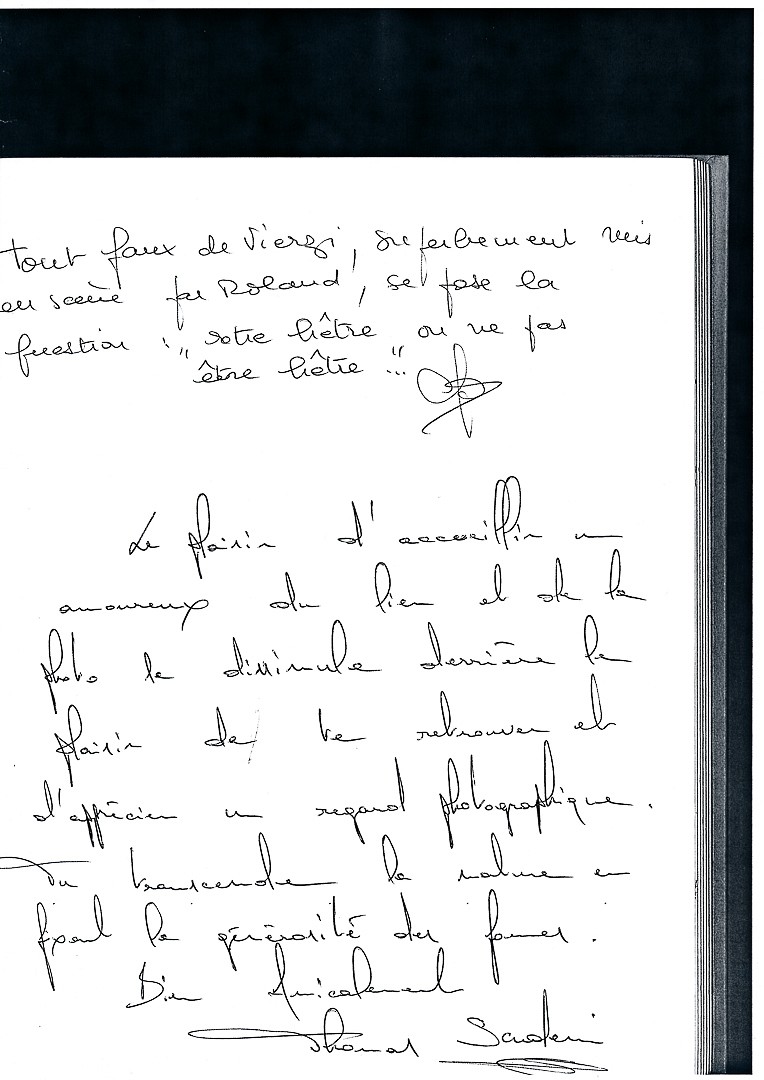 tout faux de Vierzi, superbement mis
en scène par Roland, se pose la
question : " votre hêtre ou ne pas
être hêtre "...
Le plaisir d'accueillir un
amoureux du lieu et de la
photo se dissimule derrière le
plaisir de te retrouver et
d'apprécier un regard photographique.
Tu transcendes la nature en
fixant la générosité des formes.
Bien Amicalement
Thomas